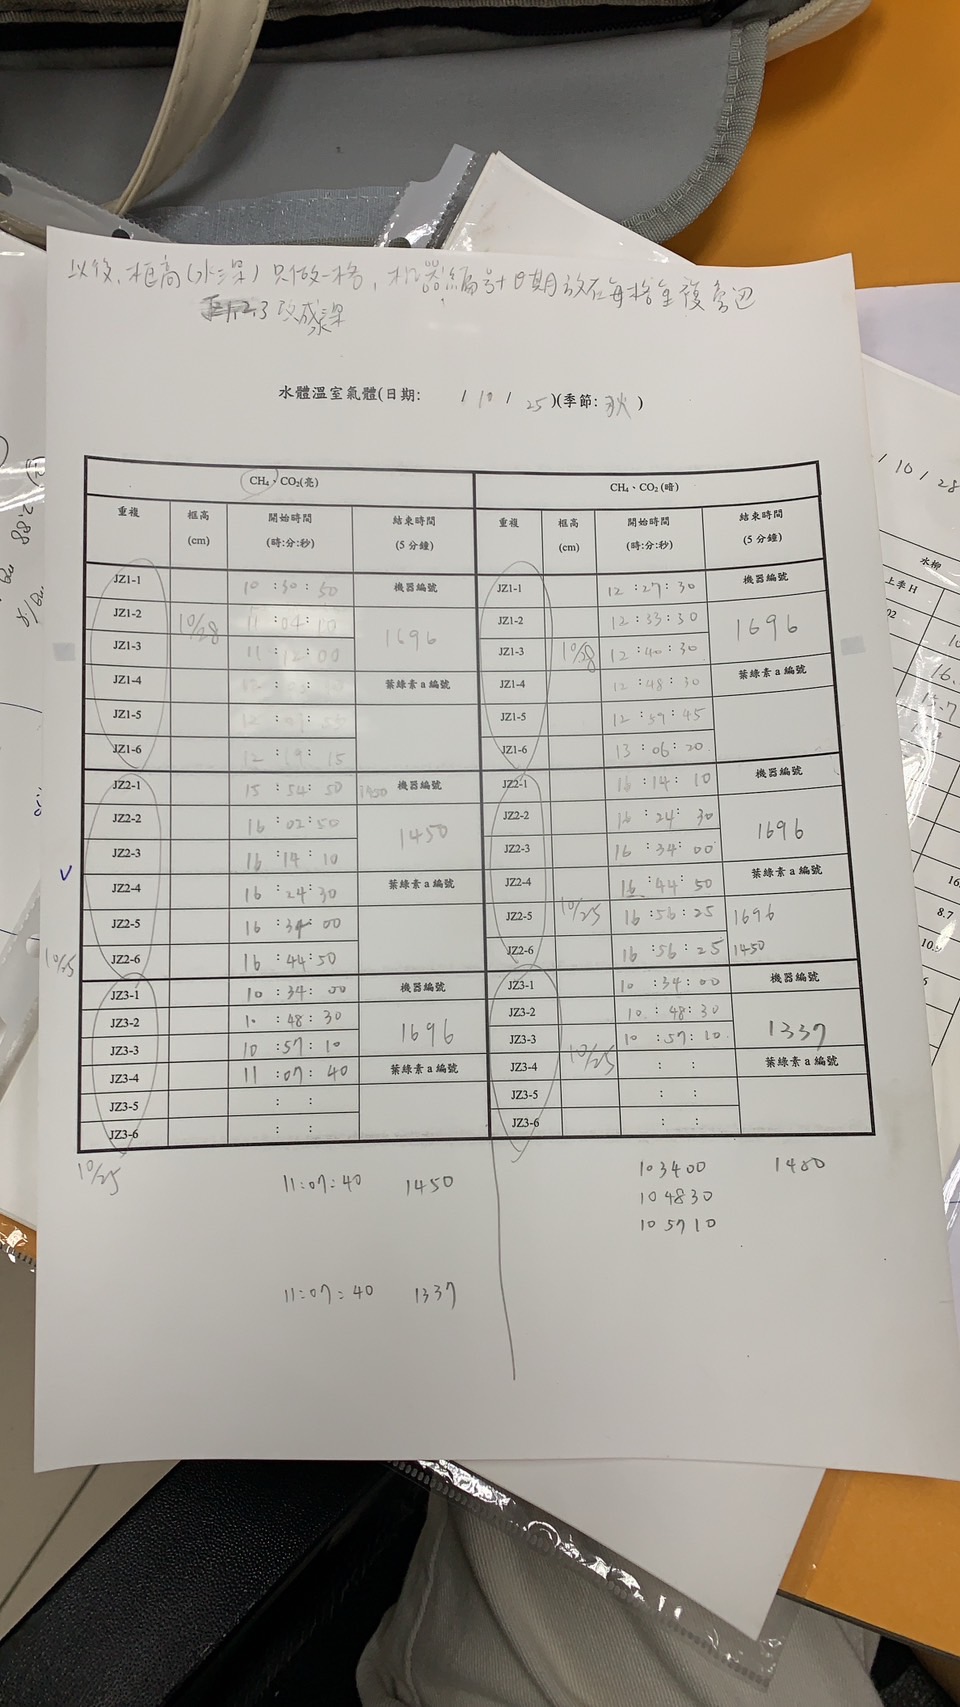 以後，框高(水深)只做一格，机器編号日期放在每格重複旁边
改成深
水體溫室氣體(日期: / 10 / 25)(季節: 秋)
CH₄、CO₂(亮) CH₄、CO₂(暗)
重複 框高(cm) 開始時間(時:分:秒) 結束時間(5分鐘) 重複 框高(cm) 開始時間(時:分:秒) 結束時間(5分鐘)
JZ1-1 10:30:50 機器編號 JZ1-1 12:27:30 機器編號
JZ1-2 10/28 11:04:10 1696 JZ1-2 12:33:30 1696
JZ1-3 11:12:00 JZ1-3 10/28 12:40:30
JZ1-4 葉綠素a編號 JZ1-4 12:48:30 葉綠素a編號
JZ1-5 12:07:55 JZ1-5 12:59:45
JZ1-6 12:19:15 JZ1-6 13:06:20
JZ2-1 15:54:50 1450 機器編號 JZ2-1 16:14:10 機器編號
JZ2-2 16:02:50 1450 JZ2-2 16:24:30 1696
JZ2-3 16:14:10 JZ2-3 16:34:00
V JZ2-4 16:24:30 葉綠素a編號 JZ2-4 16:44:50 葉綠素a編號
JZ2-5 16:34:00 JZ2-5 10/25 16:56:25 1696
10/25 JZ2-6 16:44:50 JZ2-6 16:56:25 1450
JZ3-1 10:34:00 機器編號 JZ3-1 10:34:00 機器編號
JZ3-2 10:48:30 1696 JZ3-2 10:48:30 1337
JZ3-3 10:57:10 JZ3-3 10:57:10
JZ3-4 11:07:40 葉綠素a編號 JZ3-4 10/25 : : 葉綠素a編號
JZ3-5 : : JZ3-5 : :
JZ3-6 : : JZ3-6 : :
10/25
11:07:40 1450 103400 1480
104830
105710
11:07:40 1337
/ 10 / 28
水柳
上季H
16.
8.7
10.9